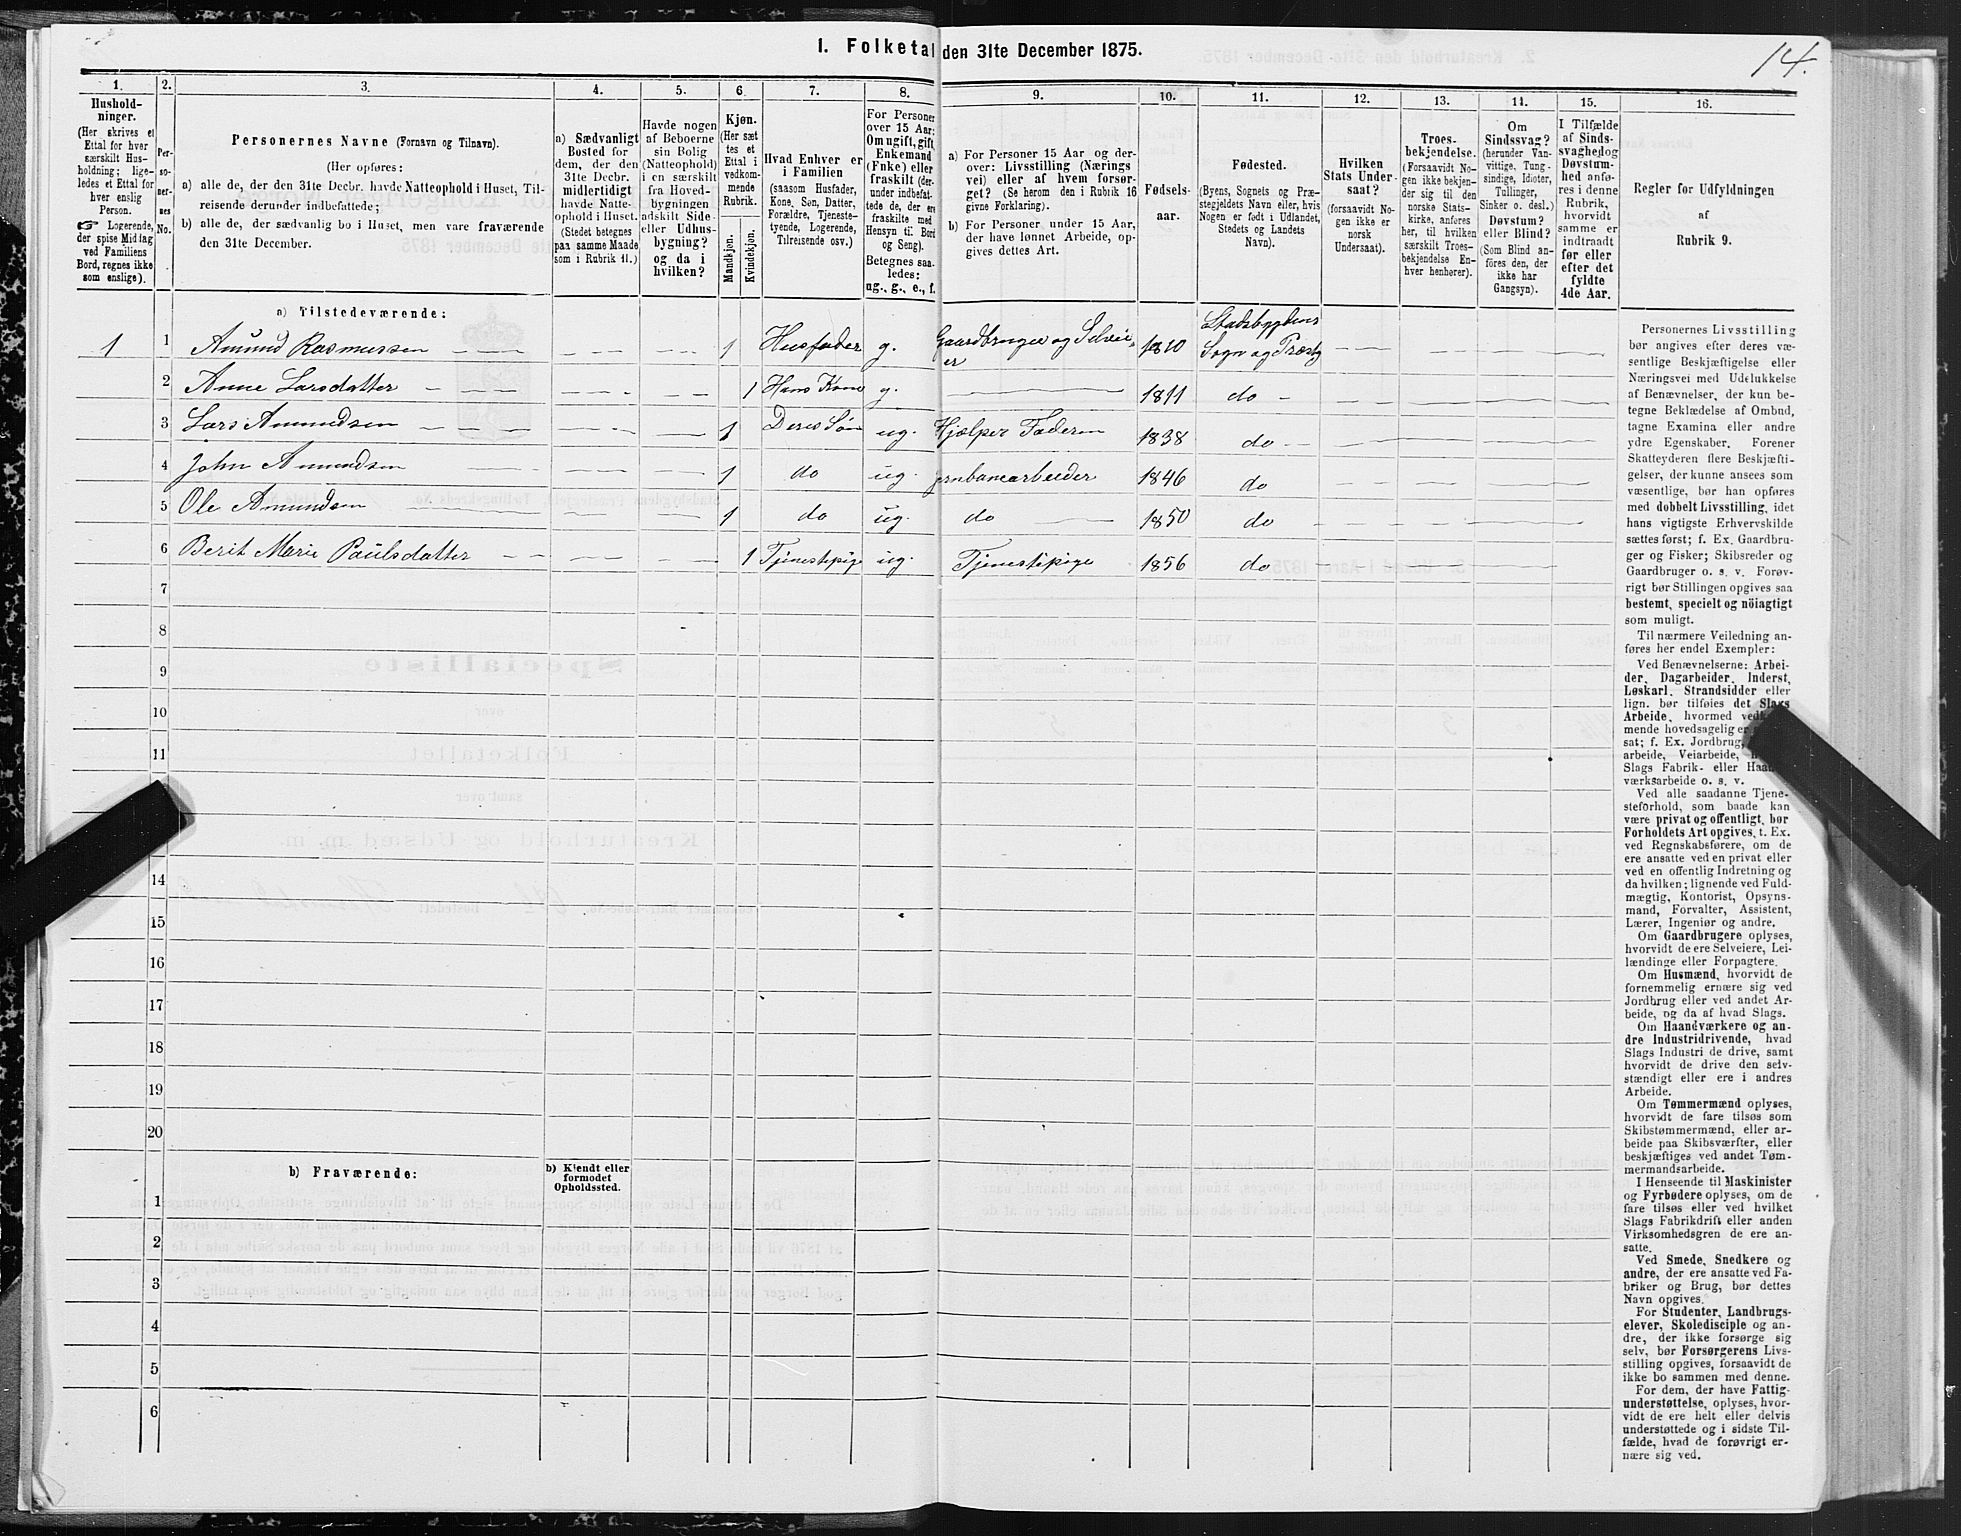 14.
I. Folketal den 31te December 1875.
1.
2.
3.
4.
5.
6.
7.
8.
9.
10.
11.
12.
13.
14.
15.
16.
Hushold-
ninger.
(Her skrives et
Ettal for hver
særskilt Hus-
holdning; lige-
ledes et Ettal for
hver enslig
Person.
☞ Logerende,
der spise Middag
ved Familiens
Bord, regnes ikke
som enslige).
Per-
so-
ner-
nes
No.
Personernes Navne (Fornavn og Tilnavn).
(Her opføres:
a) alle de, der den 31te Decbr. havde Natteophold i Huset, Til-
reisende derunder indbefattede;
b) alle de, der sædvanlig bo i Huset, men vare fraværende
den 31te December.
a) Sædvanligt
Bosted for
dem, der den
31te Decbr.
midlertidigt
havde Natte-
ophold i Huset.
(Stedet betegnes
paa samme Maade
som i Rubrik 11.)
Havde nogen
af Beboerne
sin Bolig
(Natteophold)
i en særskilt
fra Hoved-
bygningen
adskilt Side-
eller Udhus-
bygning?
og da i
hvilken?
Kjøn.
(Her sæt-
tes et
Ettal i
vedkom-
mende
Rubrik.
Mandkjøn.
Kvindekjøn.
Hvad Enhver er
i Familien
(saasom Husfader,
Kone, Søn, Datter,
Forældre, Tjeneste-
tyende, Logerende,
Tilreisende osv.)
For Personer
over 15 Aar:
Om ugift, gift,
Enkemand
(Enke) eller
fraskilt (der-
under indbefat-
tede de, der ere
fraskilte med
Hensyn til Bord
og Seng).
Betegnes saa-
ledes:
ug., g., e., f.
a) For Personer 15 Aar og der-
over: Livsstilling (Nærings
vei) eller af hvem forsør-
get? (Se herom den i Rubrik 16
givne Forklaring).
b) For Personer under 15 Aar,
der have lønnet Arbeide, op-
gives dettes Art.
Fødsels-
aar.
Fødested.
(Byens, Sognets og Præ-
stegjeldets Navn eller, hvis
Nogen er født i Udlandet,
Stedets og Landets
Navn).
Hvilken
Stats Under-
saat?
(forsaavidt No-
gen ikke er
norsk
Undersaat).
Troes-
bekjendelse.
(Forsaavidt No-
gen ikke bekjen-
der sig til den
norske Stats-
kirke, anføres
her, til hvilken
særskilt Troes-
bekjendelse En-
hver henhører).
Om
Sindssvag?
(herunder Van-
vittige, Tung-
sindige, Idioter,
Tullinger,
Sinker o. desl.)
Døvstum?
eller Blind?
(Som Blind an-
føres den, der
ikke har
Gangsyn).
I Tilfælde
af Sinds-
svaghed og
Døvstum-
hed anfø-
res i denne
Rubrik,
hvorvidt
samme er
indtraadt
før eller
efter det
fyldte
4de Aar.
Regler for Udfyldningen
af
Rubrik 9.
a) Tilstedeværende:
1 1 Amund Rasmussen 1 Husfader g. Gaardbruger og Selvei-
er 1810 Stadsbygdens
Sogn og Præstg
2 Anne Larsdatter 1 Hans Kone g. 1811 do
3 Lars Amundsen 1 Deres Søn ug. Hjælper Faderen 1838 do
4 John Amundsen 1 do ug. jernbanearbeider 1846 do
5 Ole Amundsen 1 do ug. do 1850 do
6 Berit Marie Paulsdatter 1 Tjenestepige ug. Tjenestepige 1856 do
7
8
9
10
11
14
15
16
17
18
19
20
b) Fraværende:
b) Kjendt eller
formodet
Opholdssted.
1
2
3
4
5
6
Personernes Livsstilling
bør angives efter deres væ-
sentlige Beskjæftigelse eller
Næringsvei med Udelukkelse
af Benævnelser, der kun be-
tegne Beklædelse af Ombud,
tagne Examina eller andre
ydre Egenskaber. Forener
Skatteyderen flere Beskjæfti-
gelser, der kunne ansees som
væsentlige, bør han opføres
med dobbelt Livsstilling, idet
hans vigtigste Erhvervskilde
sættes først; f. Ex. Gaardbru-
ger og Fisker; Skibsreder og
Gaardbruger o. s. v. Forøv-
rigt bør Stillingen opgives saa
bestemt, specielt og nöiagtigt
som muligt.
Til nærmere Veiledning an-
føres her endel Exempler:
Ved Benævnelserne: Arbei-
der, Dagarbeider, Inderst,
Løskarl, Strandsidder eller
lign. bør tilføies det Slags
Arbeide, hvormed
mende hovedsagelig er
sat; f. Ex. Jordbrug,
arbeide, Veiarbeide,
Slags Fabrik- eller
værksarbeide o. s. v.
Ved alle saadanne Tjene-
steforhold, som baade kan
være privat og offentligt, bør
Forholdets Art opgives, t. Ex.
ved Regnskabsførere, om de
ere ansatte ved en privat eller
ved en offentlig Indretning og
da hvilken; lignende ved Fuld-
mægtig, Kontorist, Opsyns-
mand, Forvalter, Assistent,
Lærer, Ingeniør og andre.
Om Gaardbrugere oplyses,
hvorvidt de ere Selveiere, Lei-
lændinge eller Forpagtere.
Om Husmænd, hvorvidt de
fornemmelig ernære sig ved
Jordbrug eller ved andet Ar-
beide, og da af hvad Slags.
Om Haandværkere og an-
dre Industridrivende, hvad
Slags Industri de drive, samt
hvorvidt de drive den selv-
stændigt eller ere i andres
Arbeide.
Om Tømmermænd oplyses,
hvorvidt de fare tilsøs som
Skibstømmermænd, eller ar-
beide paa Skibsværfter, eller
beskjæftiges ved andet Tøm-
mermandsarbeide.
I Henseende til Maskinister
og Fyrbødere oplyses, om de
fare tilsøs eller ved hvilket
Slags Fabrikdrift eller anden
Virksomhedsgren de ere an-
satte.
Ved Smede, Snedkere og
andre, der ere ansatte ved Fa-
briker og Brug, bør dettes
Navn opgives.
For Studenter, Landbrugs-
elever, Skoledisciple og an-
dre, der ikke forsørge sig
selv, bør Forsørgerens Livs-
stilling opgives, forsaavidt de
ikke bo sammen med denne.
For dem, der have Fattig-
understøttelse, oplyses, hvor-
vidt de ere helt eller delvis
understøttede og i sidste Til-
fælde, hvad de forøvrigt er-
nære sig ved.